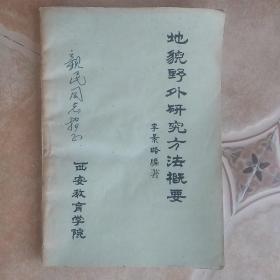 地貌野外研究方法概要
李景略编著
西安教育学院
親民同志指正